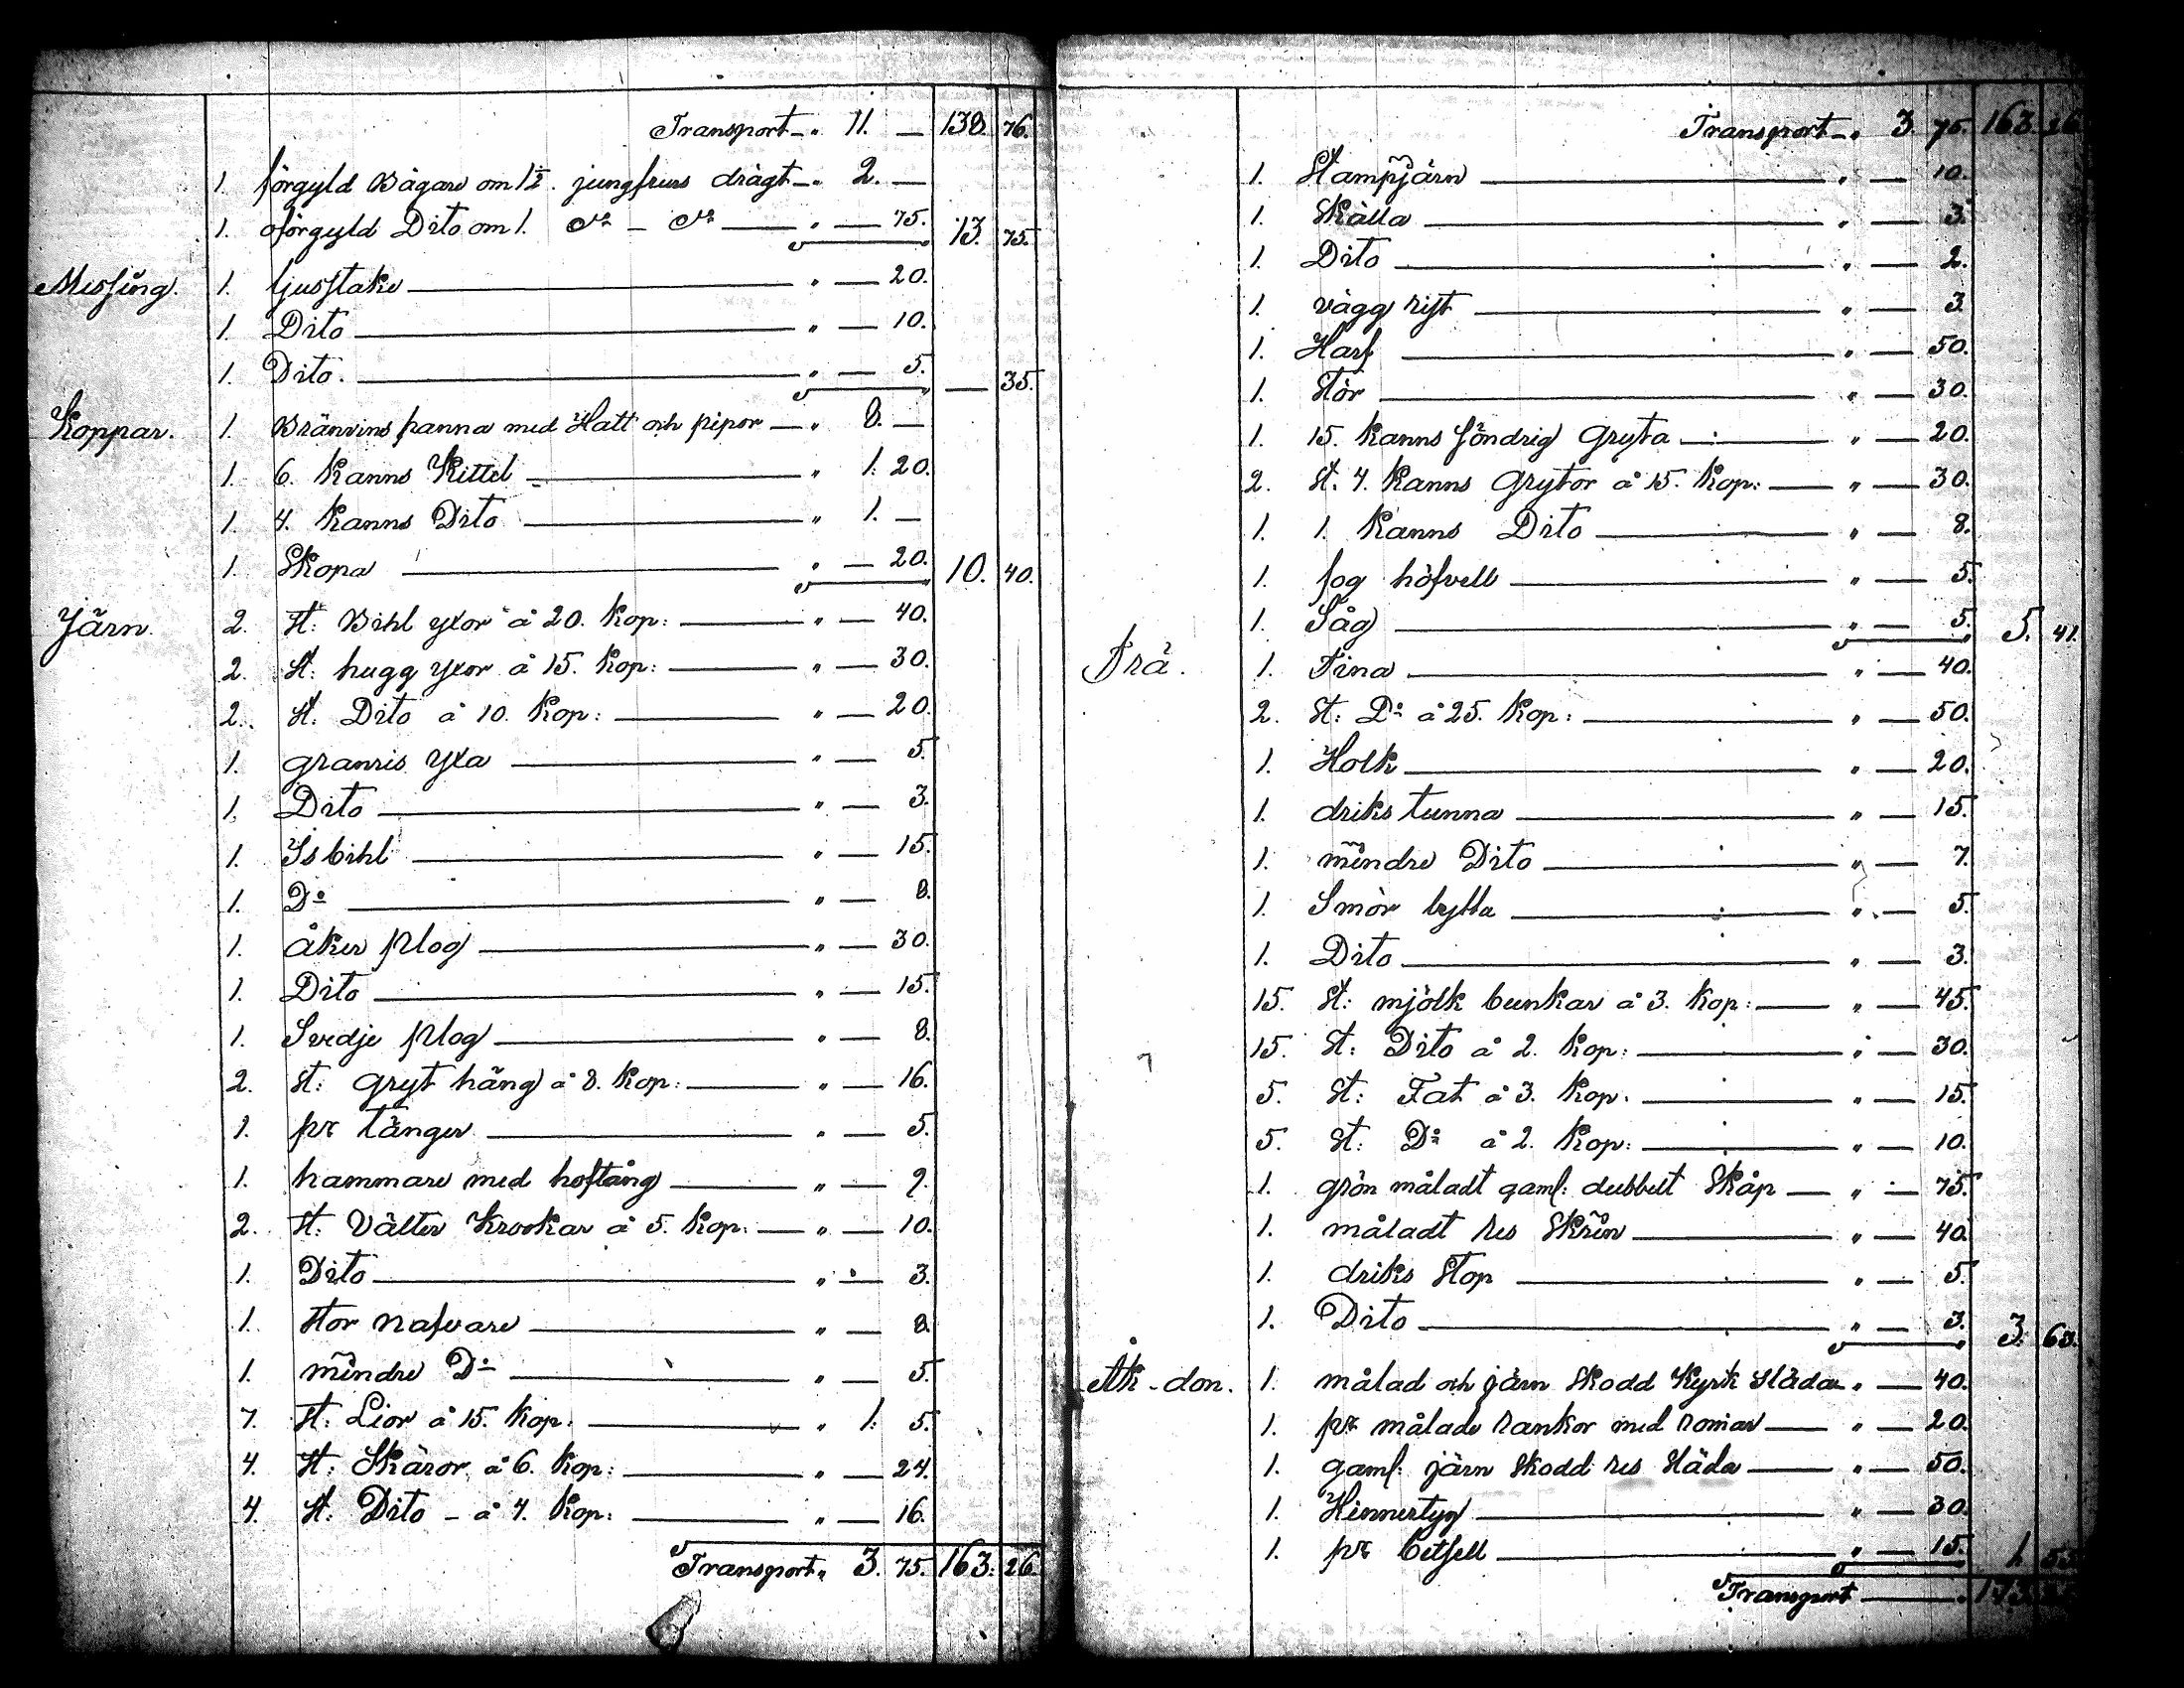 Transport -" 11. — 138. 76.
1. förgyld Bägare om 1½. jungfrurs drägt -" 2. —
1. oförgyld Dito om 1. do - do — " — 75. 13. 75.
Messing. 1. ljusstake — " — 20.
1. Dito — " — 10.
1. Dito. — " — 5. — 35.
Koppar. 1. Bränvins panna med Hatt och pipor — " 8. —
1. 6. Kanns Kittel — " 1. 20.
1. 4. Kanns Dito — " 1. —
1. Skopa — " — 20. 10. 40.
Järn. 2. st: Bihl yxor à 20. Kop: — " — 40.
2. st: hugg yxor à 15. Kop: — " — 30.
2. st: Dito à 10. Kop: — " — 20.
1. granris yxa — " — 5.
1. Dito — " — 3.
1. Isbihl — " — 15.
1. Do — " — 8.
1. åker plog — " — 30.
1. Dito — " — 15.
1. Svedje plog — " — 8.
2. st: gryt häng à 8. Kop: — " — 16.
1. pr tänger — " — 5.
1. hammare med hoftång — " — 9.
2. st: Välter Krookar à 5. Kop: — " — 10.
1. Dito — " — 3.
1. stor nafvare — " — 8.
1. mindre Do — " — 5.
7. st: Lior à 15. Kop: — " 1. 5.
4. st: Skäror à 6. Kop: — " — 24.
4. st: Dito - à 4. Kop: — " — 16.
Transport " 3. 75. 163. 26.
Transport -" 3. 75. 163. 26
1. Stampjärn — " — 10.
1. Skälla — " — 3.
1. Dito — " — 2.
1. vägg rist — " — 3.
1. Harf — " — 50.
1. Stör — " — 30.
1. 15. Kanns söndrig Gryta — " — 20.
2. st. 4. Kanns Grytor à 15. Kop: — " — 30.
1. 1. Kanns Dito — " — 8.
1. fog höfvell — " — 5.
1. Såg — " — 5. 5. 41.
Trä. 1. Tina — " — 40.
2. st: Do à 25. Kop: — " — 50.
1. Holk — " — 20.
1. driks tunna — " — 15.
1. mindre Dito — " — 7.
1. Smör bytta — " — 5.
1. Dito — " — 3.
15. st: mjölk bunkar à 3. Kop: — " — 45.
15. st: Dito à 2. Kop: — " — 30.
5. st: Fat à 3. Kop. — " — 15.
5. st: Do à 2. Kop: — " — 10.
1. grön måladt gaml: dubbelt Skåp — " — 75.
1. måladt res Skrin — " — 40.
1. driks Stop — " — 5.
1. Dito — " — 3. 3. 63.
Åk-don. 1. målad och järn Skodd Kyrk Släda " — 40.
1. pr målade rankor med — " — 20.
1. gaml: järn Skodd res Släda — " — 50.
1. — " — 30.
1. pr betsell — " — 15. 1. 55.
Transport — "